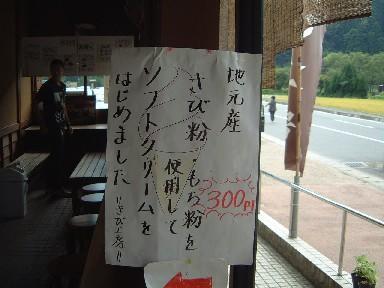 地元産
きび粉・もち粉を
使用して
ソフトクリームを
はじめました
300円
きび工房!!